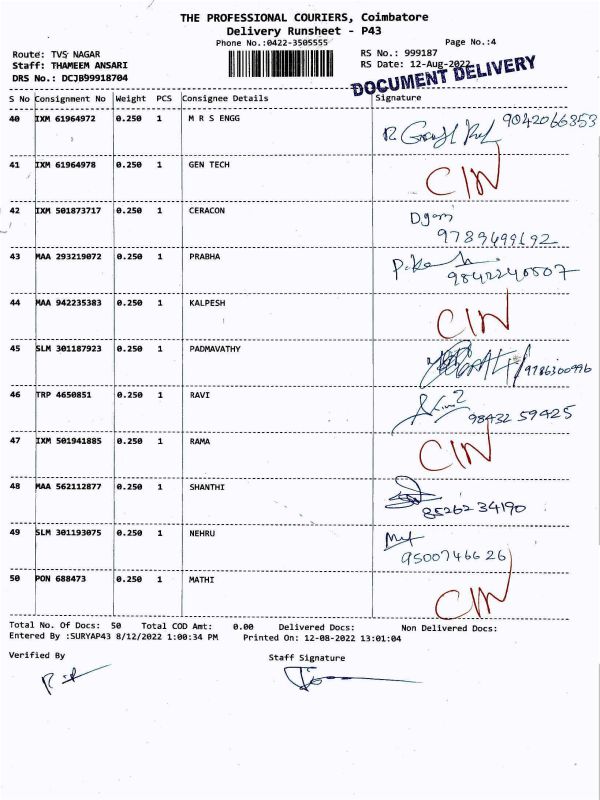 THE PROFESSIONAL COURIERS, Coimbatore
Delivery Runsheet - P43
Phone No.:0422-3505555
Page No.:4
Route: TVS NAGAR
RS No.: 999187
Staff: THAMEEM ANSARI
RS Date: 12-Aug-2022
DRS No.: DCJB99918704
DOCUMENT DELIVERY
S No Consignment No Weight PCS Consignee Details Signature
40 IXM 61964972 0.250 1 M R S ENGG 9042066853
41 IXM 61964978 0.250 1 GEN TECH CIN
42 IXM 501873717 0.250 1 CERACON
9789499192
43 MAA 293219072 0.250 1 PRABHA
9842240507
44 MAA 942235383 0.250 1 KALPESH CIN
45 SLM 301187923 0.250 1 PADMAVATHY
9786300996
46 TRP 4650851 0.250 1 RAVI
98432 59425
47 IXM 501941885 0.250 1 RAMA CIN
48 MAA 562112877 0.250 1 SHANTHI
85262 34190
49 SLM 301193075 0.250 1 NEHRU
9500746626
50 PON 688473 0.250 1 MATHI CIN
Total No. Of Docs: 50 Total COD Amt: 0.00 Delivered Docs: Non Delivered Docs:
Entered By :SURYAP43 8/12/2022 1:00:34 PM Printed On: 12-08-2022 13:01:04
Verified By Staff Signature